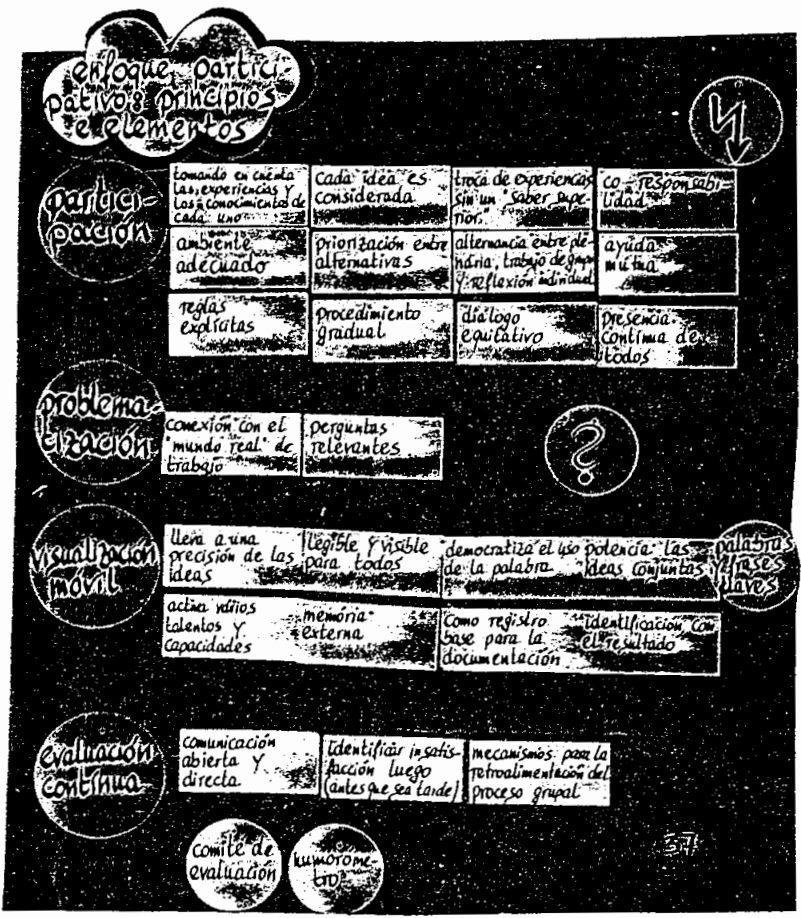 enfoque partici-
pativo: principios
e elementos
partici-
pación
tomando en cuenta
las experiencias y
los conocimientos de
cada uno
Cada idea es
considerada
troca de experiencias
sin un "saber supe-
rior."
co-responsabi-
lidad
ambiente
adecuado
priorización entre
alternativas
alternancia entre ple-
naria, trabajo de grupo
y reflexión individual
ayuda
mútua
reglas
explícitas
procedimiento
gradual
diálogo
equitativo
presencia
contínua de
todos
problema-
tización
conexión con el
"mundo real" de
trabajo
perguntas
relevantes
?
visualización
móvil
lleva a una
precisión de las
ideas
legible y visible
para todos
democratiza el uso
de la palabra
potencia las
ideas conjuntas
palabras
y frases
claves
activa vários
talentos y
capacidades
memória
externa
como registro
base para la
documentación
identificación con
el resultado
evaluación
contínua
comunicación
abierta y
directa
identificar insatis-
facción luego
(antes que sea tarde)
mecanismos para la
retroalimentación del
proceso grupal
comité de
evaluación
humorome-
tro
37